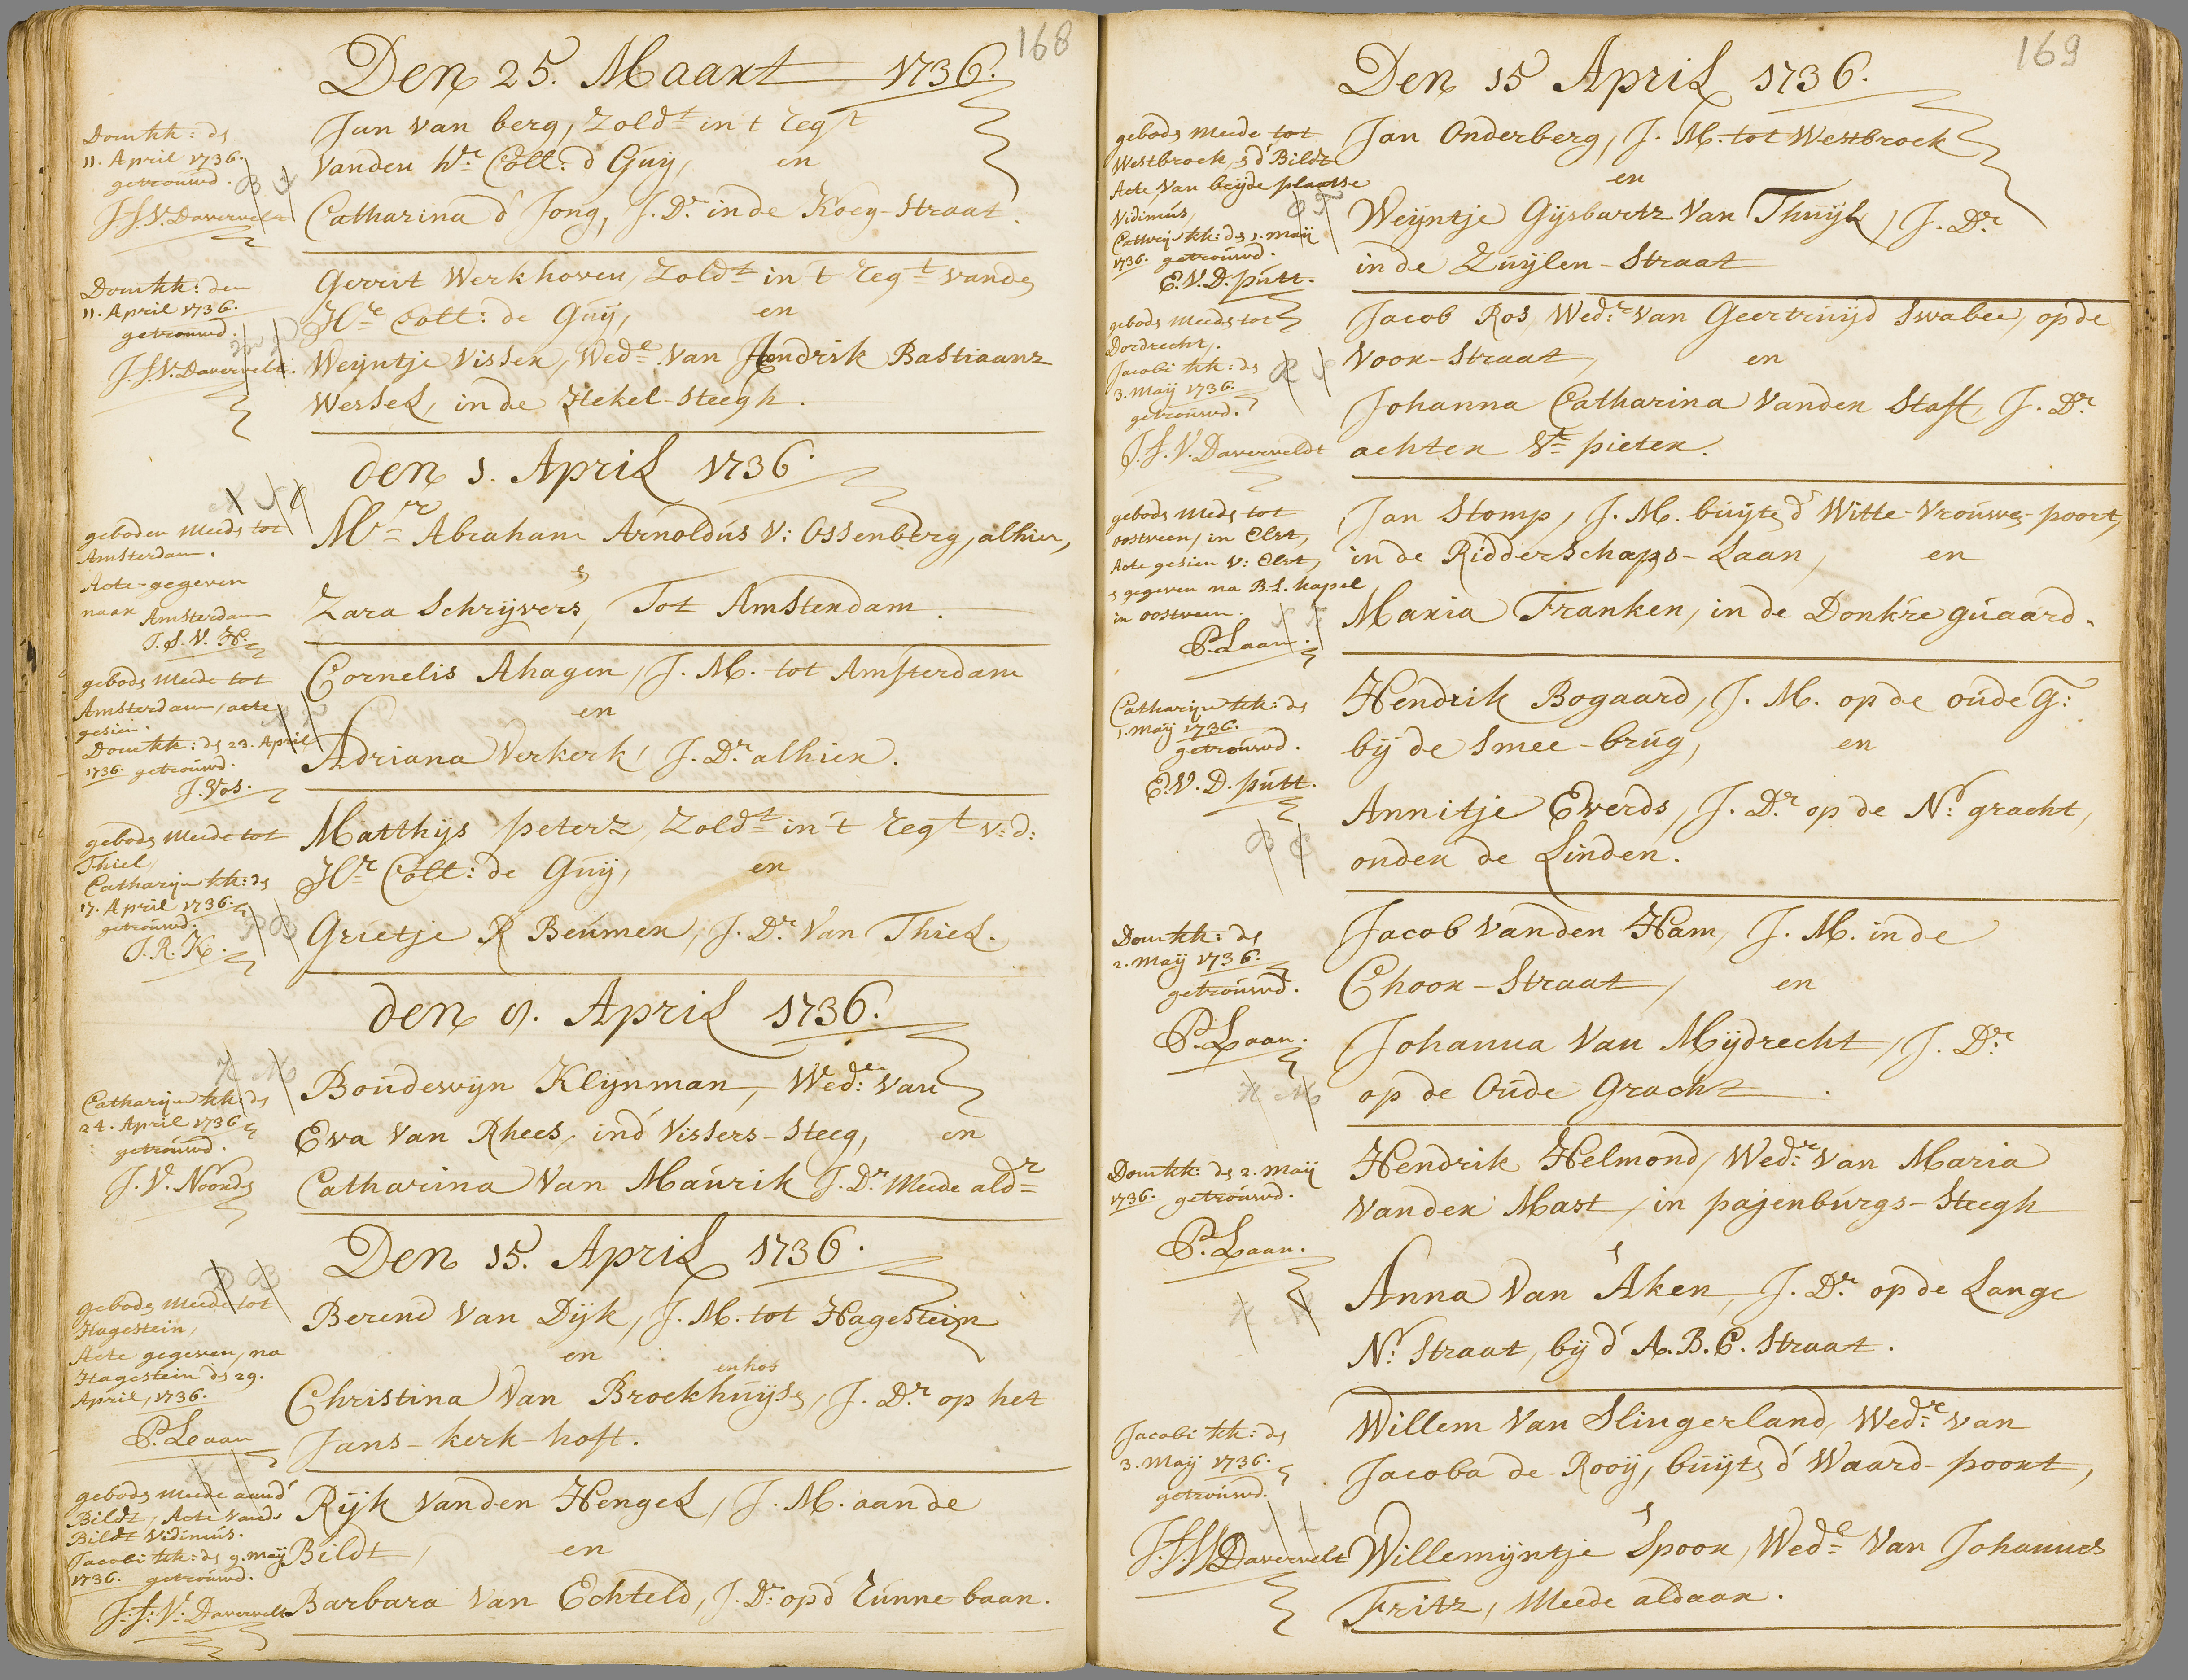 168
Den 25. Maart 1736.
Domkk: ds
11. April 1736.
getrouwd.
J.J.V. Daverveldt
Jan van berg, Zoldt in t regt
vanden hr. Coll: d Guÿ, en
Catharina d' Jong, J. Dr. in de Koeÿ-Straat.
Domkk: den
11. April 1736.
getrouwd.
J.J.V. Daverveldt.
Gerrit Werkhoven, Zoldt in 't regt vande
Hr Coll: de Guÿ, en
Weÿntje Visser, Wede van Hendrik Bastiaanz
Wessel, in de Hekel-Steegh.
den 1. April 1736.
geboden meede tot
Amsterdam.
Acte-gegeven
naar Amsterdam
J.S.V.H.
Mr Abraham Arnoldús V: Ossenberg, alhier,
s
Zara Schrijvers, Tot Amsterdam.
gebods meede tot
Amsterdam, acte
gesien.
Domkk: ds 23. April
1736. getrouwd.
J. Vos.
Cornelis Ahagen, J. M. tot Amsterdam
en
Adriana Verkerk, J. Dr. alhier.
gebods meede tot
Thiel,
Catharijn kk: ds
17. April 1736.
getrouwd.
J.R.K.
Matthijs peterz, Zoldt in 't regt v:d:
Hr Coll: de Guÿ, en
Grietje R Beúmer, J. Dr. Van Thiel.
den 9. April 1736.
Catharijn kk: ds
24. April 1736
getrouwd.
J.V. Noords
Boúdewijn Klijnman, Wedr. van
Eva Van Rhees, ind Vissers-Steeg, en
Catharina Van Maúrik J. Dr. Meede aldr
Den 15. April 1736.
gebods meede tot
Hagestein,
Acte gegeven, na
Hagestein ds 29.
April, 1736.
P. Laan
Berend Van Dijk, J. M. tot Hagestein
en
enhos
Christina Van Broekhuijse, J. Dr. op het
Jans-kerk-hoft.
gebods meede aand'
Bildt, Acte vande
Bildt Vidimús.
Jacobi kk: ds 9. Maÿ
1736. getrouwd.
J.J.V. Daverveldt
Rijk vanden Hengel, J. M. aan de
Bildt, en
Barbara Van Echteld, J. Dr. op d' Runne-baan.
169
Den 15 April 1736.
gebods meede tot
Westbroek, s d'Bildt
Acte, van beijde plaatse
Vidimús,
Catharijn kk: ds 1. Maÿ
1736. getrouwd.
E.V.D. pútt.
Jan Onderberg, J. M. tot Westbroek
en
Weijntje Gijsbartz Van Thuijl, J. Dr.
in de Zuijlen-Straat
gebods meede tot
Dordrecht,
Jacobi kk: ds
3. Maÿ 1736.
getrouwd.
J.J.V. Daverveldt
Jacob Ros, Wedr. van Geertruijd Swabee, op de
Voor-Straat, en
Johanna Catharina Vanden Staff, J. Dr.
achter St pieter.
gebods meede tot
oostveen, in Elst,
Acte gesien V: Elst,
s gegeven na B.L. kapel
in oostveen.
P. Laan.
Jan Stomp, J. M. buijte d' Witte-Vrouwe-poort,
in de Ridderschaps-Laan, en
Maria Franken, in de Donkre gúaard.
Catharijn kk: ds
1. Maÿ 1736.
getrouwd.
E.V.D. pútt.
Hendrik Bogaard, J. M. op de oúde G:
bij de Smee-brúg, en
Annitje Everds, J. Dr. op de N: gracht,
onder de Linden.
Domkk: ds
2. Maÿ 1736.
getrouwd.
P. Laan.
Jacob Vanden Ham, J. M. in de
Choor-Straat, en
Johanna Van Mijdrecht, J. Dr.
op de Oúde Gracht.
Domkk: ds 2. Maÿ
1736. getrouwd.
P. Laan.
Hendrik Helmond, Wedr. van Maria
vander Mast, in pajenbúrgs-Steegh
s
Anna Van Aken, J. Dr. op de Lange
N: Straat, bij d' A.B.C. Straat.
Jacobi kk: ds
3. Maÿ 1736.
getrouwd.
J.J.V. Daverveldt
Willem Van Slingerland, Wedr. van
Jacoba de Rooij, buijte d' Waard-poort,
s
Willemijntje Spoor, Wede Van Johannes
Fritz, Meede aldaar.